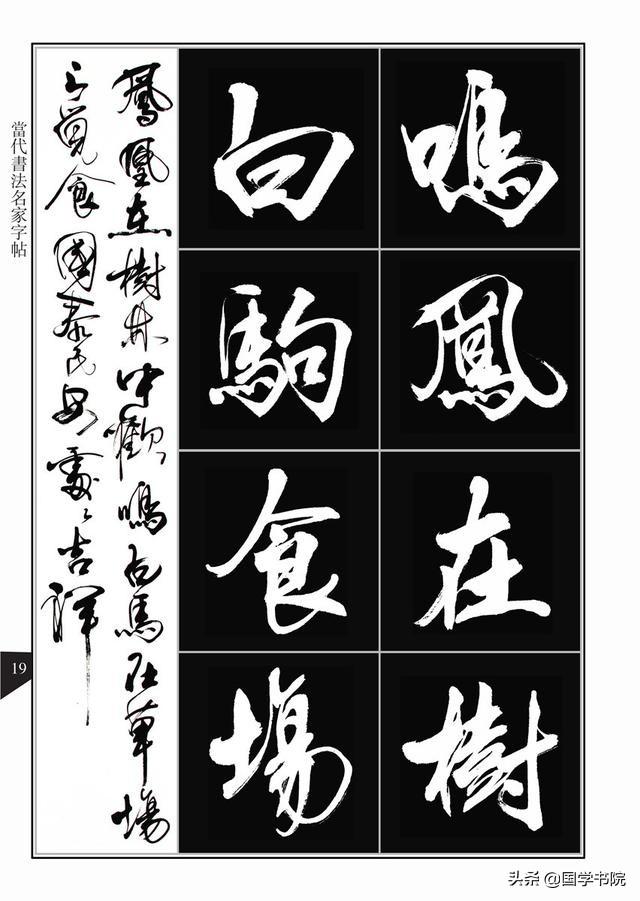 鳴鳳在樹
白駒食場
鳳凰在樹林中歡鳴白馬在草場
上覓食國泰民安處〻吉祥
當代書法名家字帖
19
头条 @国学书院